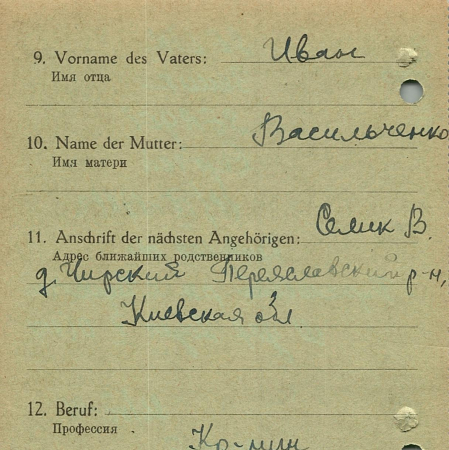 9. Vorname des Vaters: Иван
Имя отца
10. Name der Mutter: Васильченко
Имя матери
11. Anschrift der nächsten Angehörigen: Семик В.
Адрес ближайших родственников
д. Чирский Переяславский р-н,
Киевская обл.
12. Beruf:
Профессия